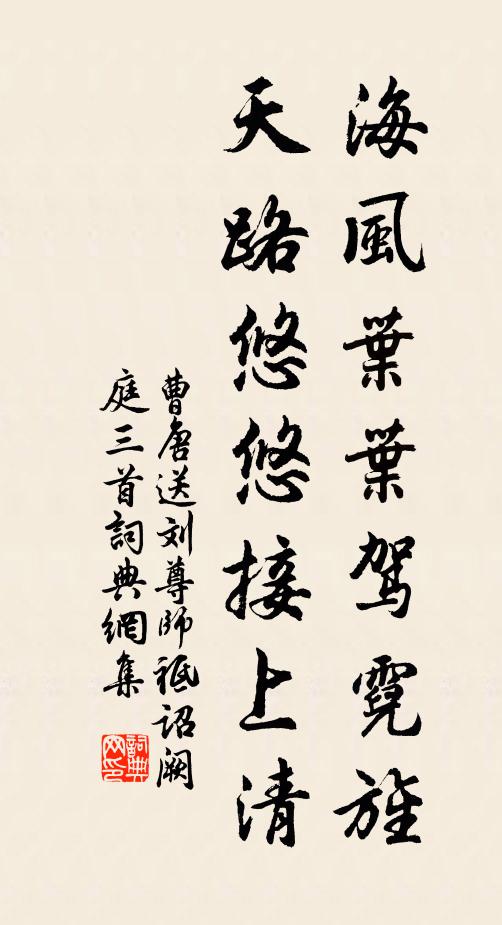 海風葉葉駕霓旌
天路悠悠接上清
曹唐送刘尊師祗诏阙
庭三首詞典網集
詞典网印